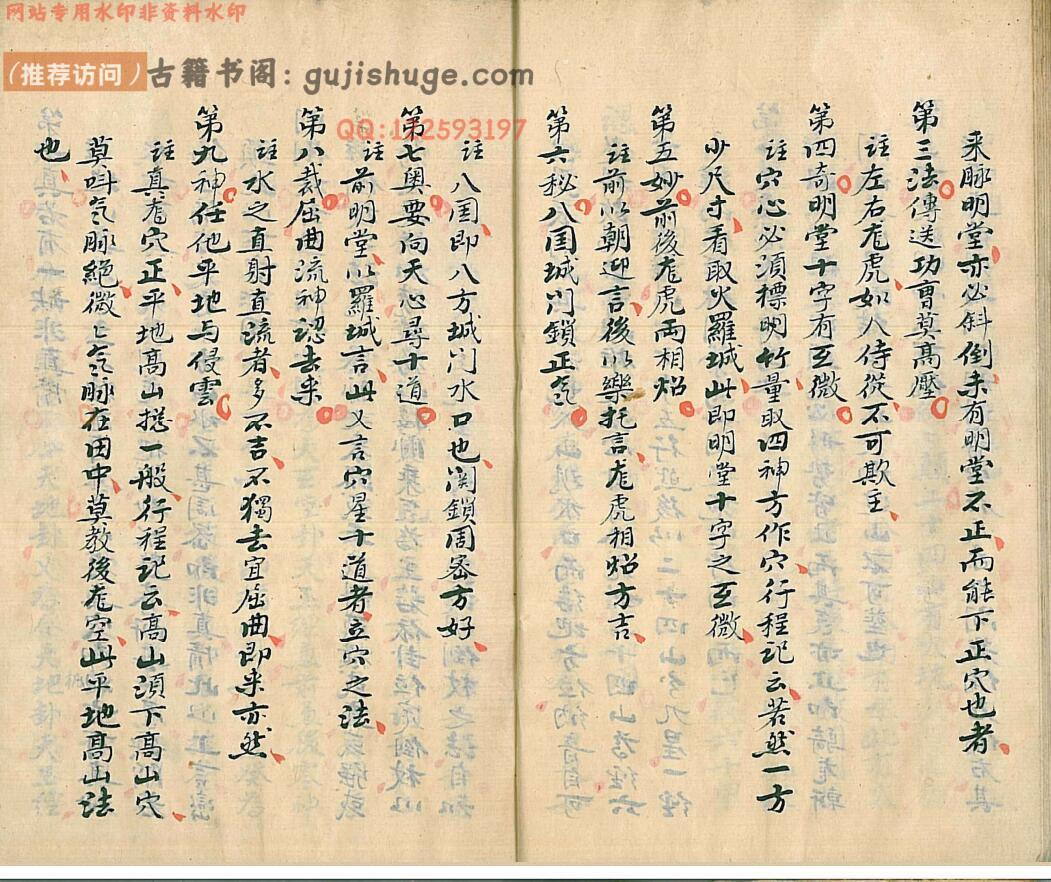 网站专用水印非资料水印
(推荐访问)古籍书阁: gujishuge.com
QQ:122593197
来脉明堂亦必斜倒未有明堂不正而能下正穴也者
第三法傳送功曹莫高壓
註左右尨虎如人侍從不可欺主
第四奇明堂十字有玄微
註穴心必須標明竹量取四神方作穴行程記云若然一方
少尺寸看取火羅城此即明堂十字之玄微
第五妙前後尨虎兩相炤
註前以朝迎言後以樂托言尨虎相炤方吉
第六秘八国城门鎖正气
註八国即八方城门水口也関鎖周宻方好
第七奥要向天心尋十道
註前明堂以羅城言此又言穴星十道者立穴之法
第八裁屈曲流神認去来
註水之直射直流者多不吉不獨去宜屈曲即来亦然
第九神任他平地与侵雲
註真尨穴正平地高山捴一般行程記云高山須下高山穴
莫叫气脉絶微亡气脉在田中莫教後尨空此平地高山法
也